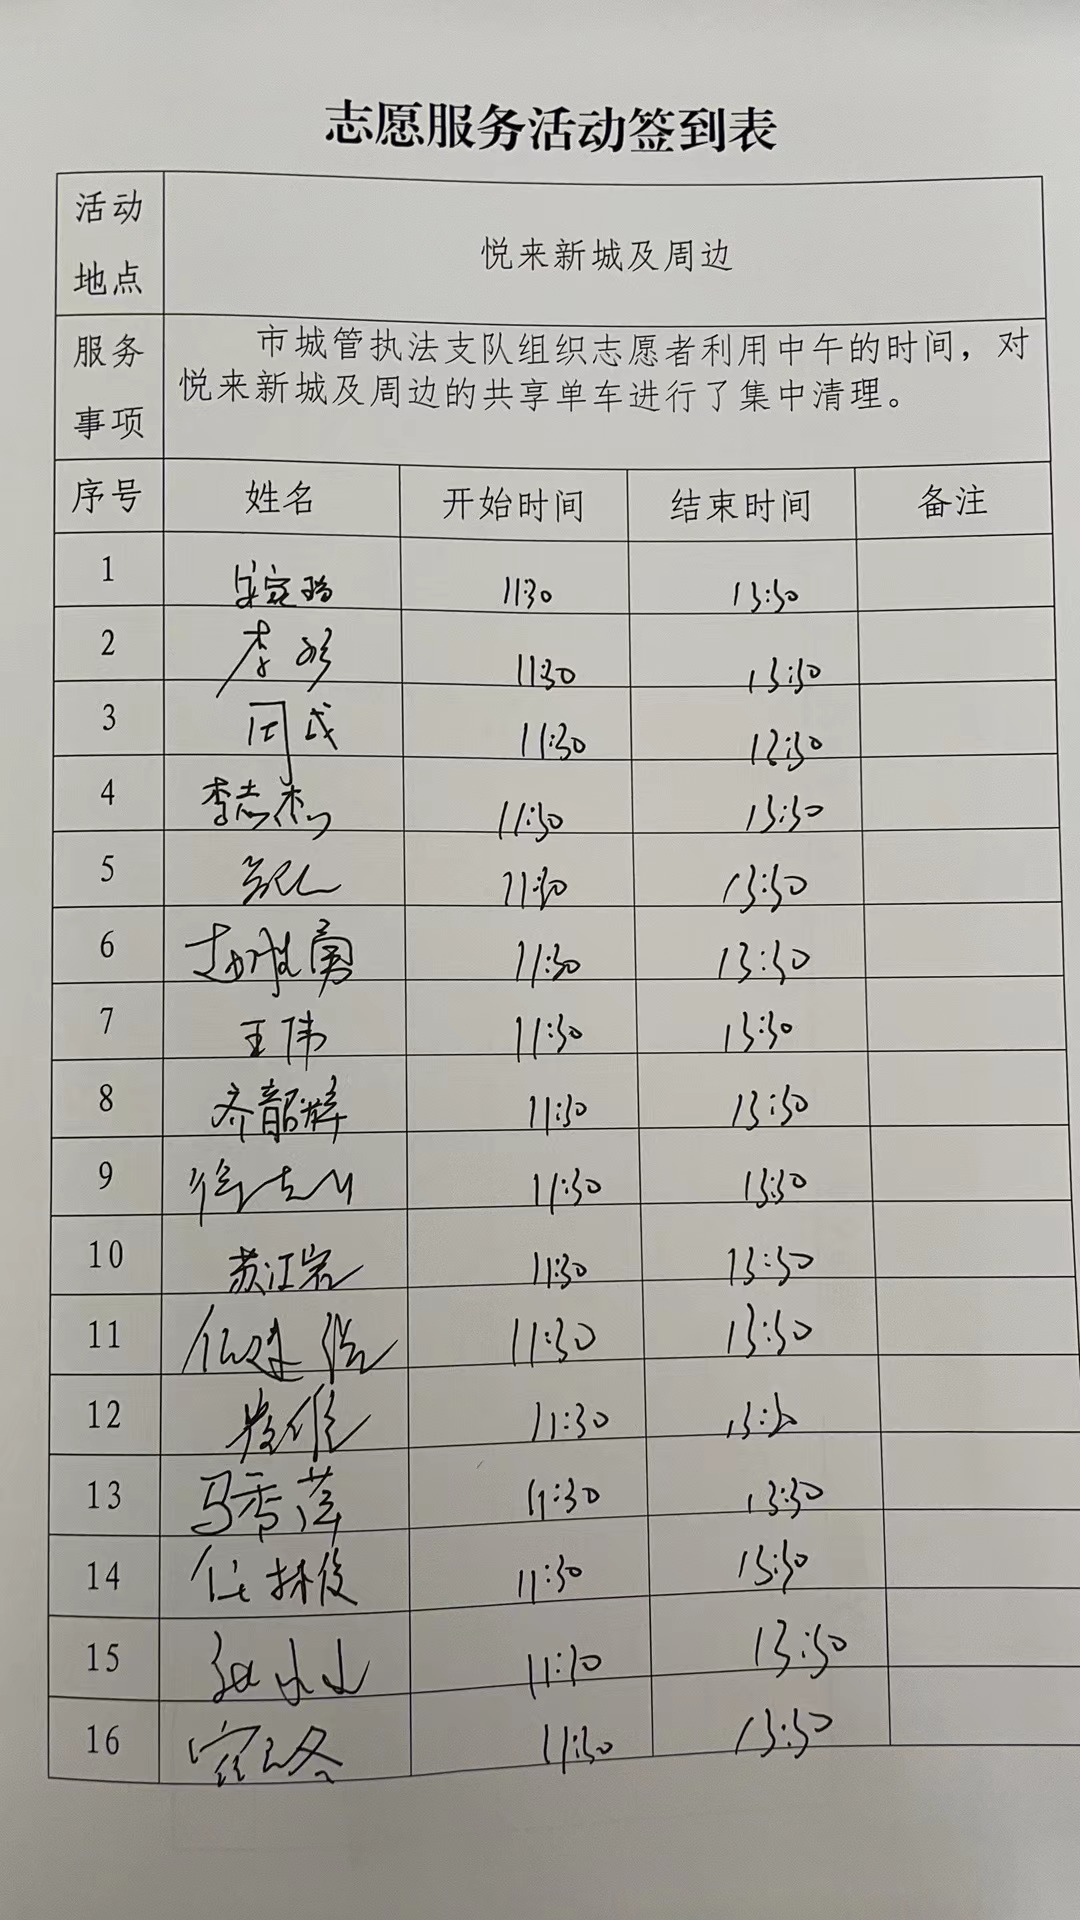 志愿服务活动签到表
活动地点 悦来新城及周边
服务事项 市城管执法支队组织志愿者利用中午的时间，对
悦来新城及周边的共享单车进行了集中清理。
序号 姓名 开始时间 结束时间 备注
1 11:30 13:30
2 李彬 11:30 13:30
3 11:30
4 李志杰 11:30 13:30
5 11:30 13:30
6 赵胜勇 11:30 13:30
7 王伟 11:30 13:30
8 齐韶辉 11:30 13:30
9 11:30 13:30
10 苏江宏 11:30 13:30
11 11:30 13:30
12 11:30 13:30
13 马秀萍 11:30 13:30
14 任林俊 11:30 13:30
15 11:30 13:30
16 11:30 13:30